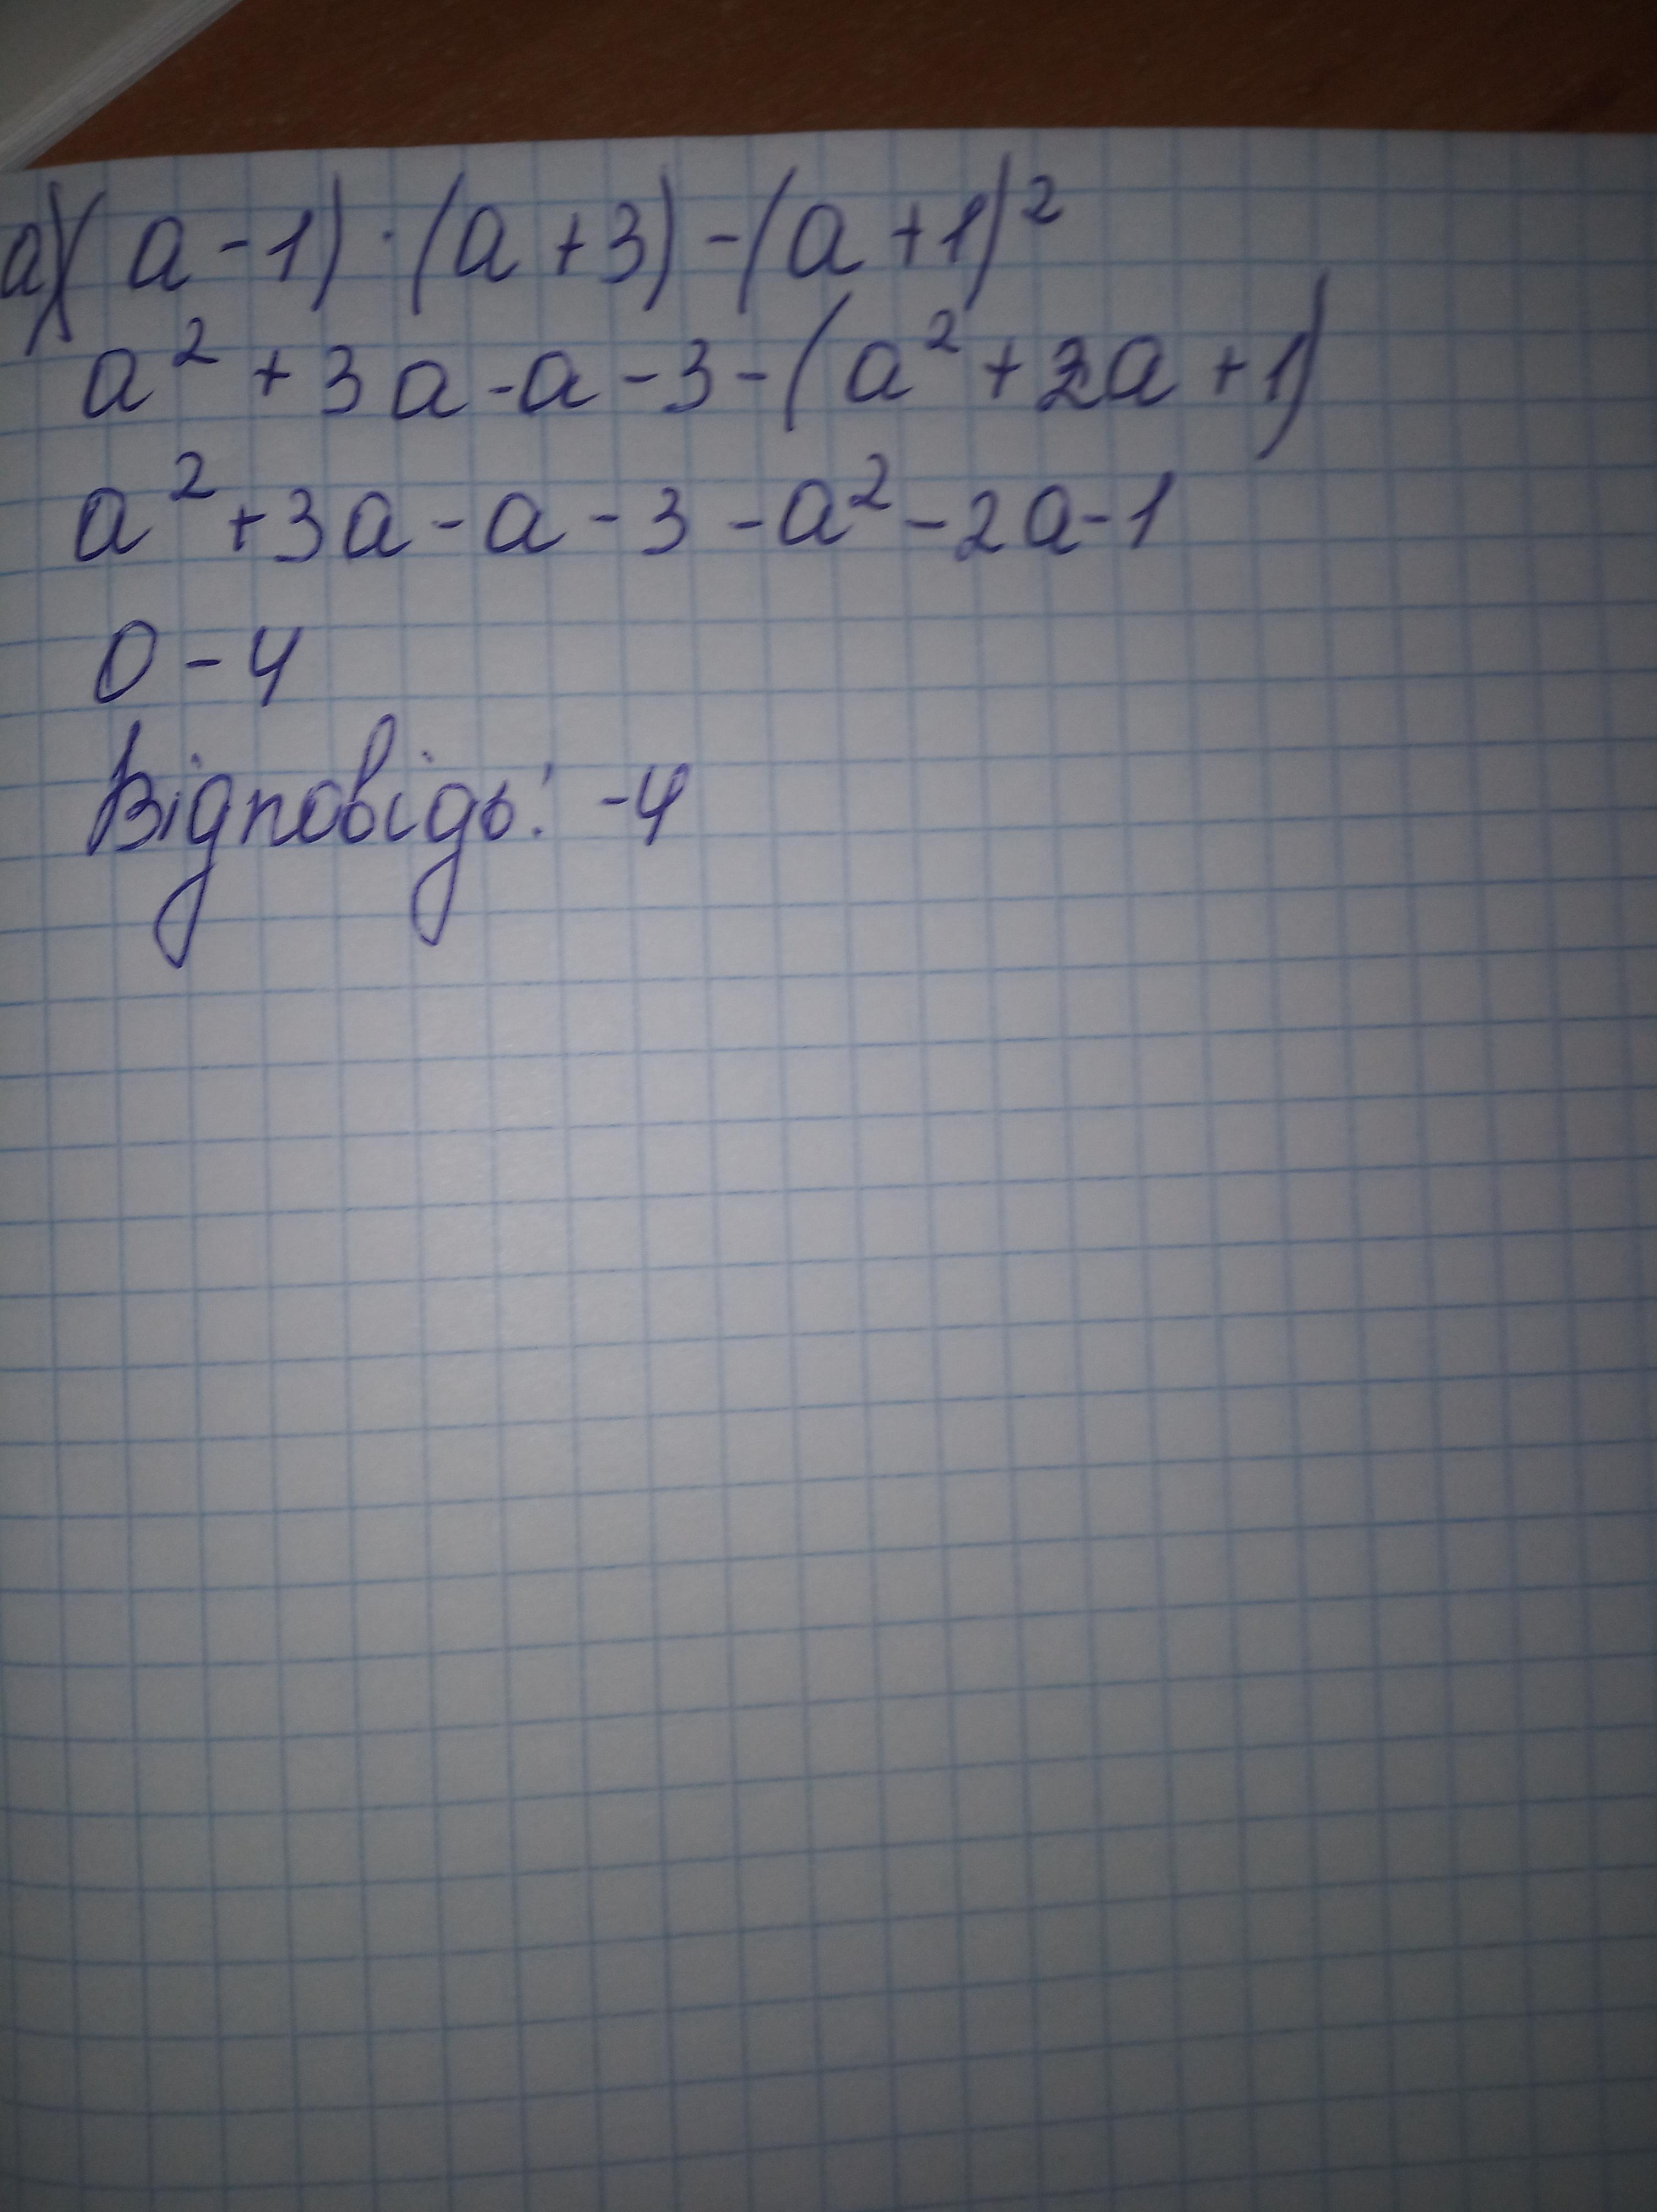 а) (a - 1) · (a + 3) - (a + 1)²
a² + 3a - a - 3 - (a² + 2a + 1)
a² + 3a - a - 3 - a² - 2a - 1
0 - 4
Відповідь: -4